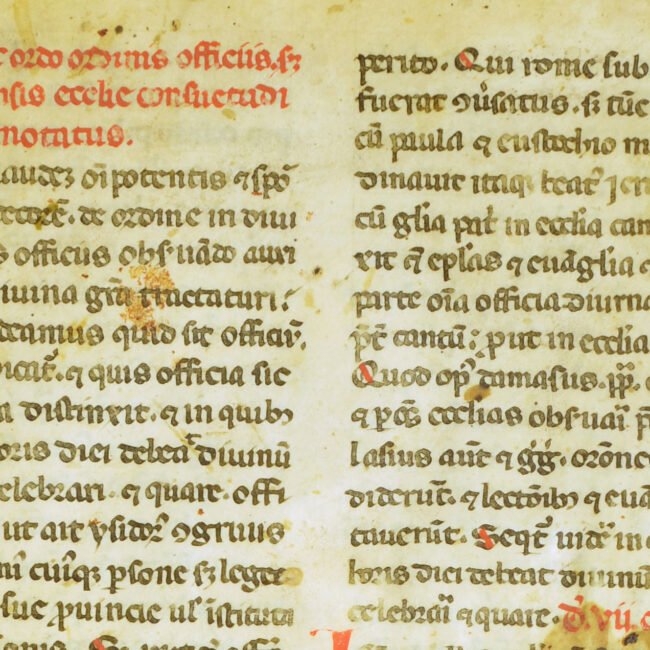 ordo ordinis officiis. sꝫ
nsis ecclie consuetudi
notatus.
laudeꝫ oīpotentis ⁊ spō
decorē. de ordine in diui
officiis obsꝰuādo auxi
iuina gr̄a tractaturi:
deamus quid sit officiū.
dicat̄. ⁊ quis officia sic
a distinxit. ⁊ in quibꝫ
oris diei debeāt diuinū
celebrari. ⁊ quare. offi
ut ait ysidorꝰ ꝯgruus
cuiqꝫ ꝑsone sꝫ leges
siue ꝓuincie ul' istituta
perito. Qui rome sub
fuerat ꝯuersatus. sꝫ tūc
cū paula ⁊ eustochio
dinauit itaqꝫ beatꝰ Jer
cū glīa pat̄ in ecclīa can
xit ⁊ ep̄las ⁊ euāglia ⁊
parte oīa officia diurna
p̄t cantū: ꝓut in ecclīa
Quod opꝰ damasus. pp̄.
⁊ ꝑ oēs ecclias obsꝰuari
lasius aūt ⁊ g̅g̅. orōne
diderūt. ⁊ lectōibꝫ ⁊ euā
tauerūt. Seqt̄ uidē in
horis diei debeat diuinū
celebrari ⁊ quare. vii.